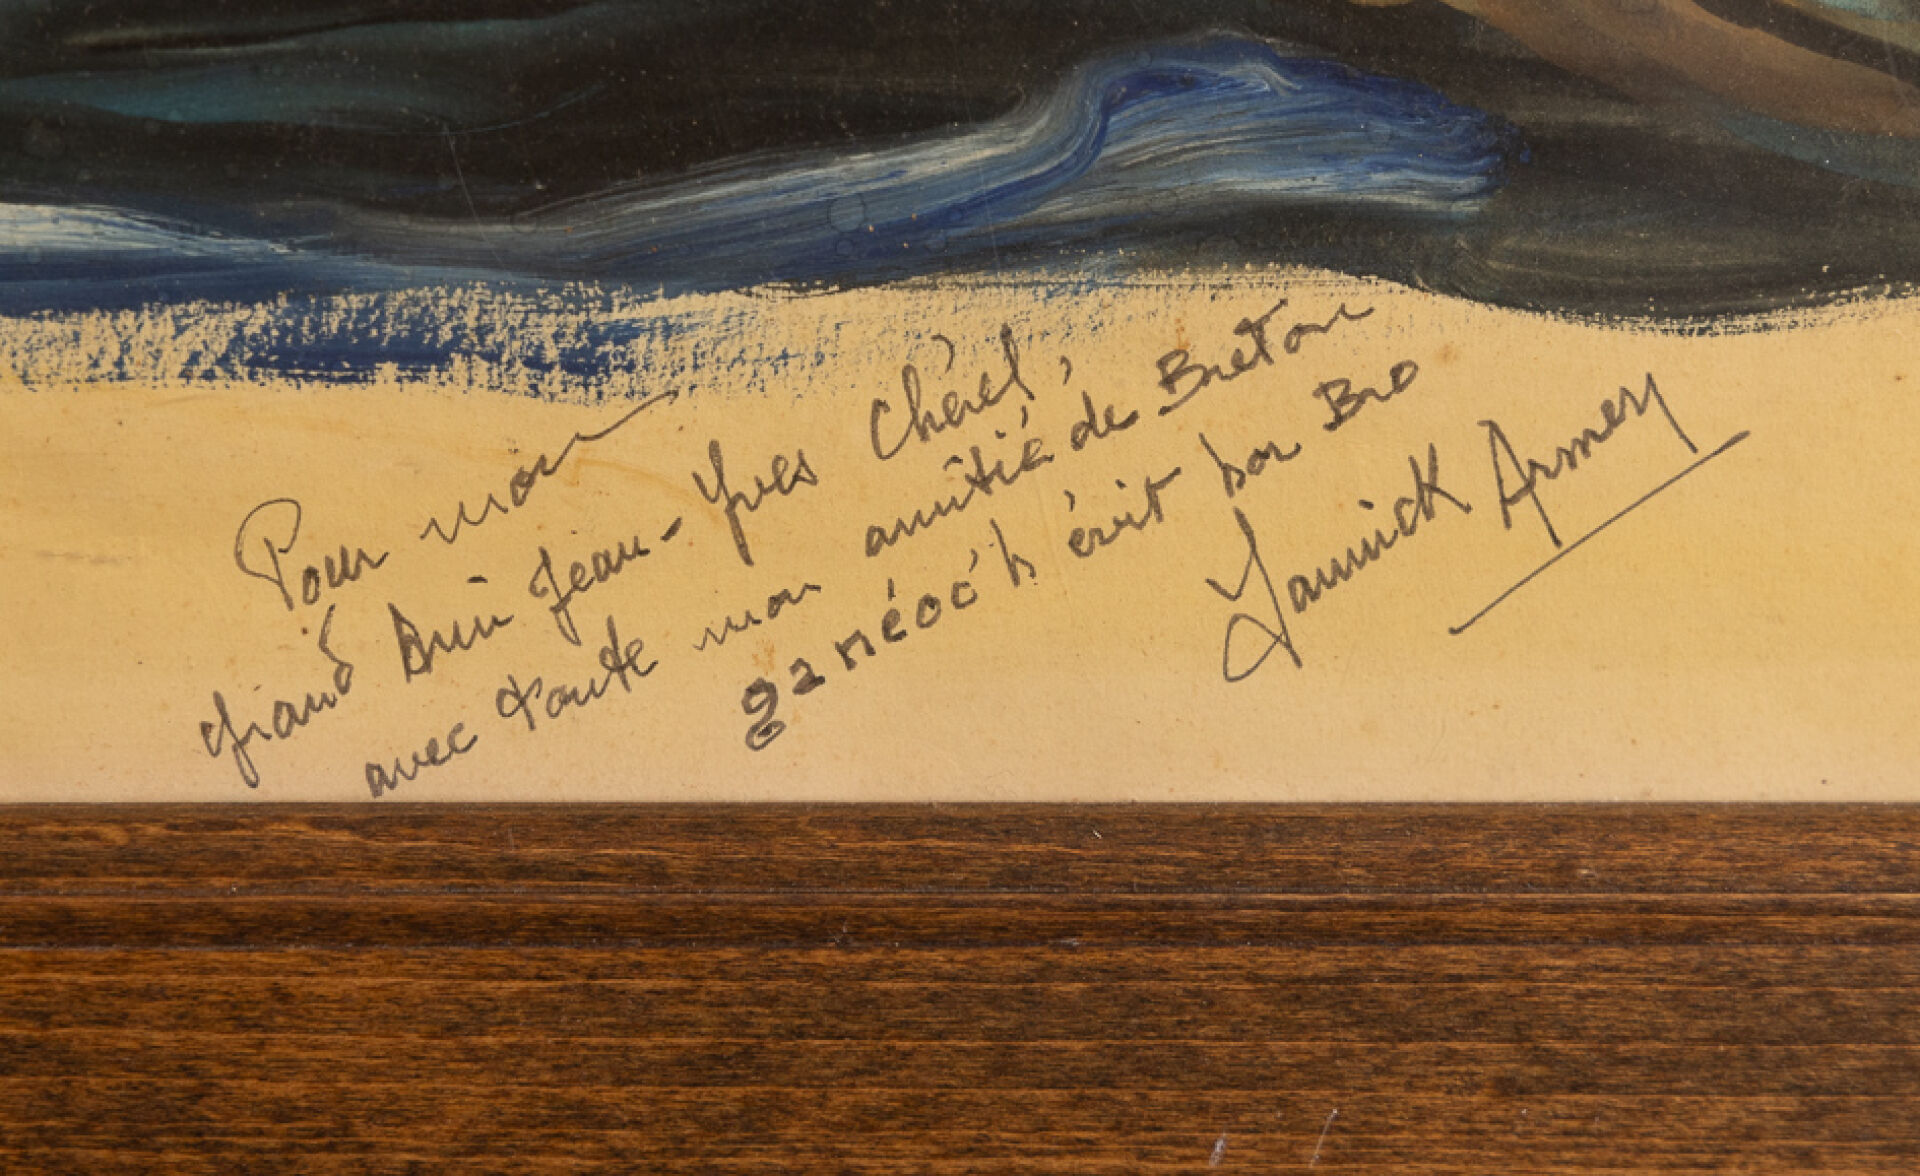 Pour mon
grand Ami Jean-Yves Chérel,
avec toute mon amitié de Breton
ganéoc'h évit hor Bro
Yannick Armey